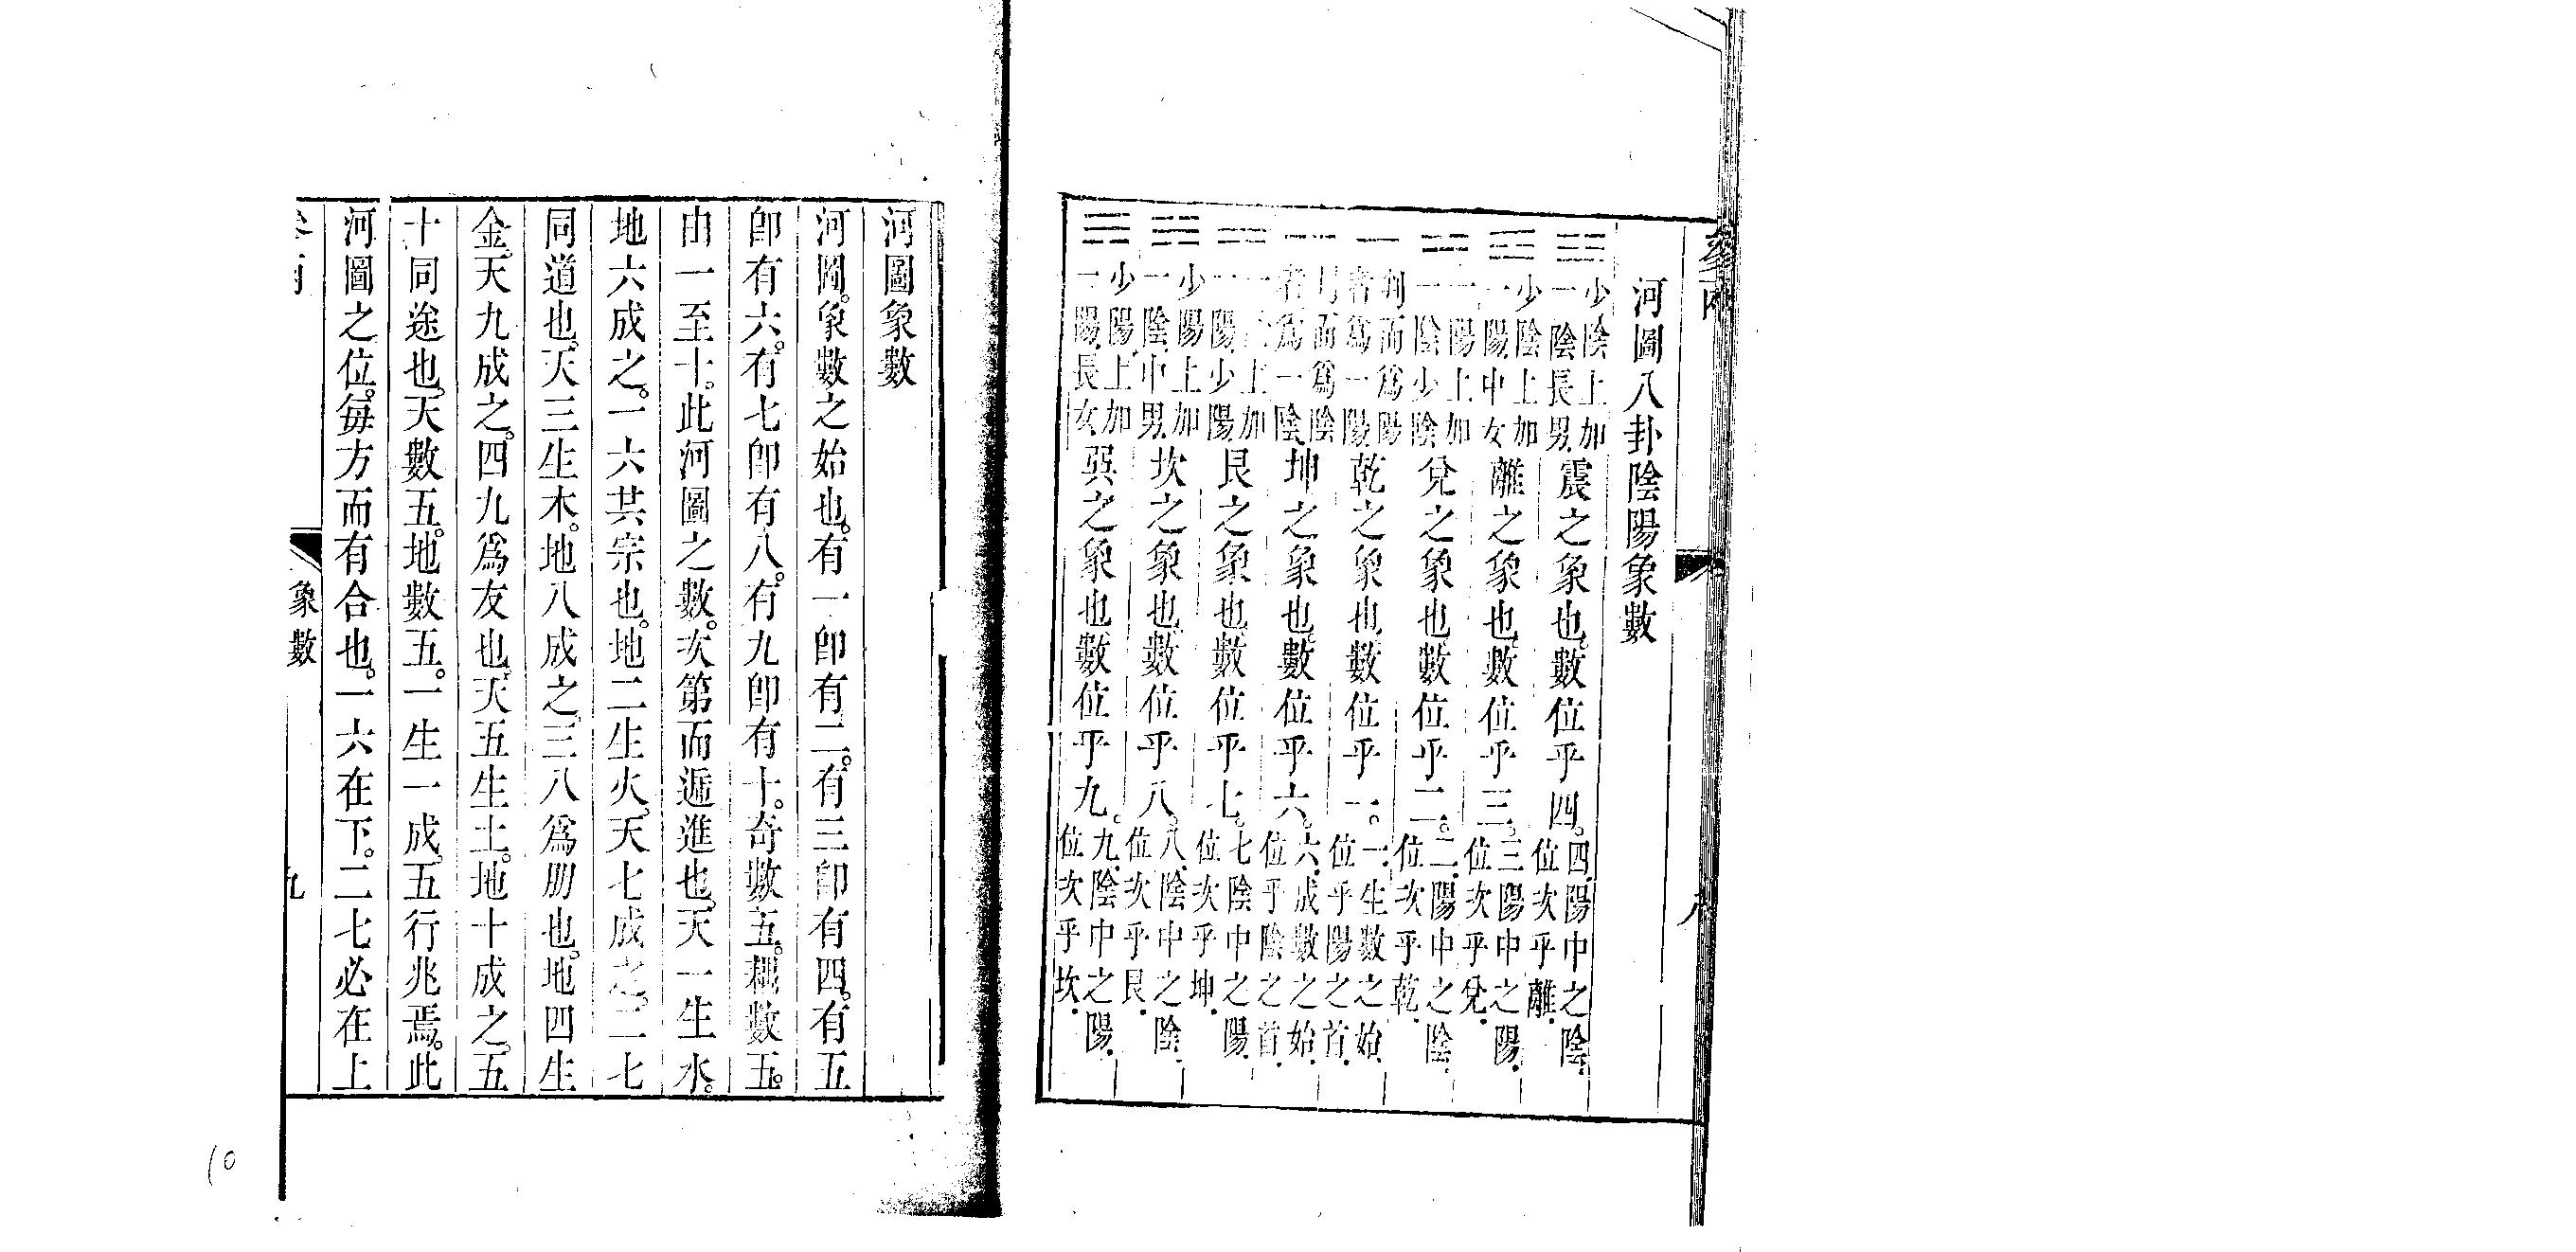 河圖八卦陰陽象數
☳少陰上加一陰長男震之象也。數位乎四。四陽中之陰位次乎離
☲少陰上加一陽中女離之象也。數位乎三。三陽中之陽位次乎兌
☱一陽上加一陰少陰兌之象也。數位乎二。二陽中之陰位次乎乾
者爲一陽乾之象也。數位乎一。一生數之始位乎陽之首
者爲一陰坤之象也。數位乎六。六成數之始位乎陰之首
上加一陽少陽艮之象也。數位乎七。七陰中之陽位次乎坤
☵少陽上加一陰中男坎之象也。數位乎八。八陰中之陰位次乎艮
☴少陽上加一陽長女巽之象也。數位乎九。九陰中之陽位次乎坎
八
河圖象數
河圖。象數之始也。有一卽有二。有三卽有四。有五
卽有六。有七卽有八。有九卽有十。奇數五。耦數五。
由一至十。此河圖之數。次第而遞進也。天一生水。
地六成之。一六共宗也。地二生火。天七成之。二七
同道也。天三生木。地八成之。三八爲朋也。地四生
金。天九成之。四九爲友也。天五生土。地十成之。五
十同途也。天數五。地數五。一生一成。五行兆焉。此
河圖之位。每方而有合也。一六在下。二七必在上
象數
九
10